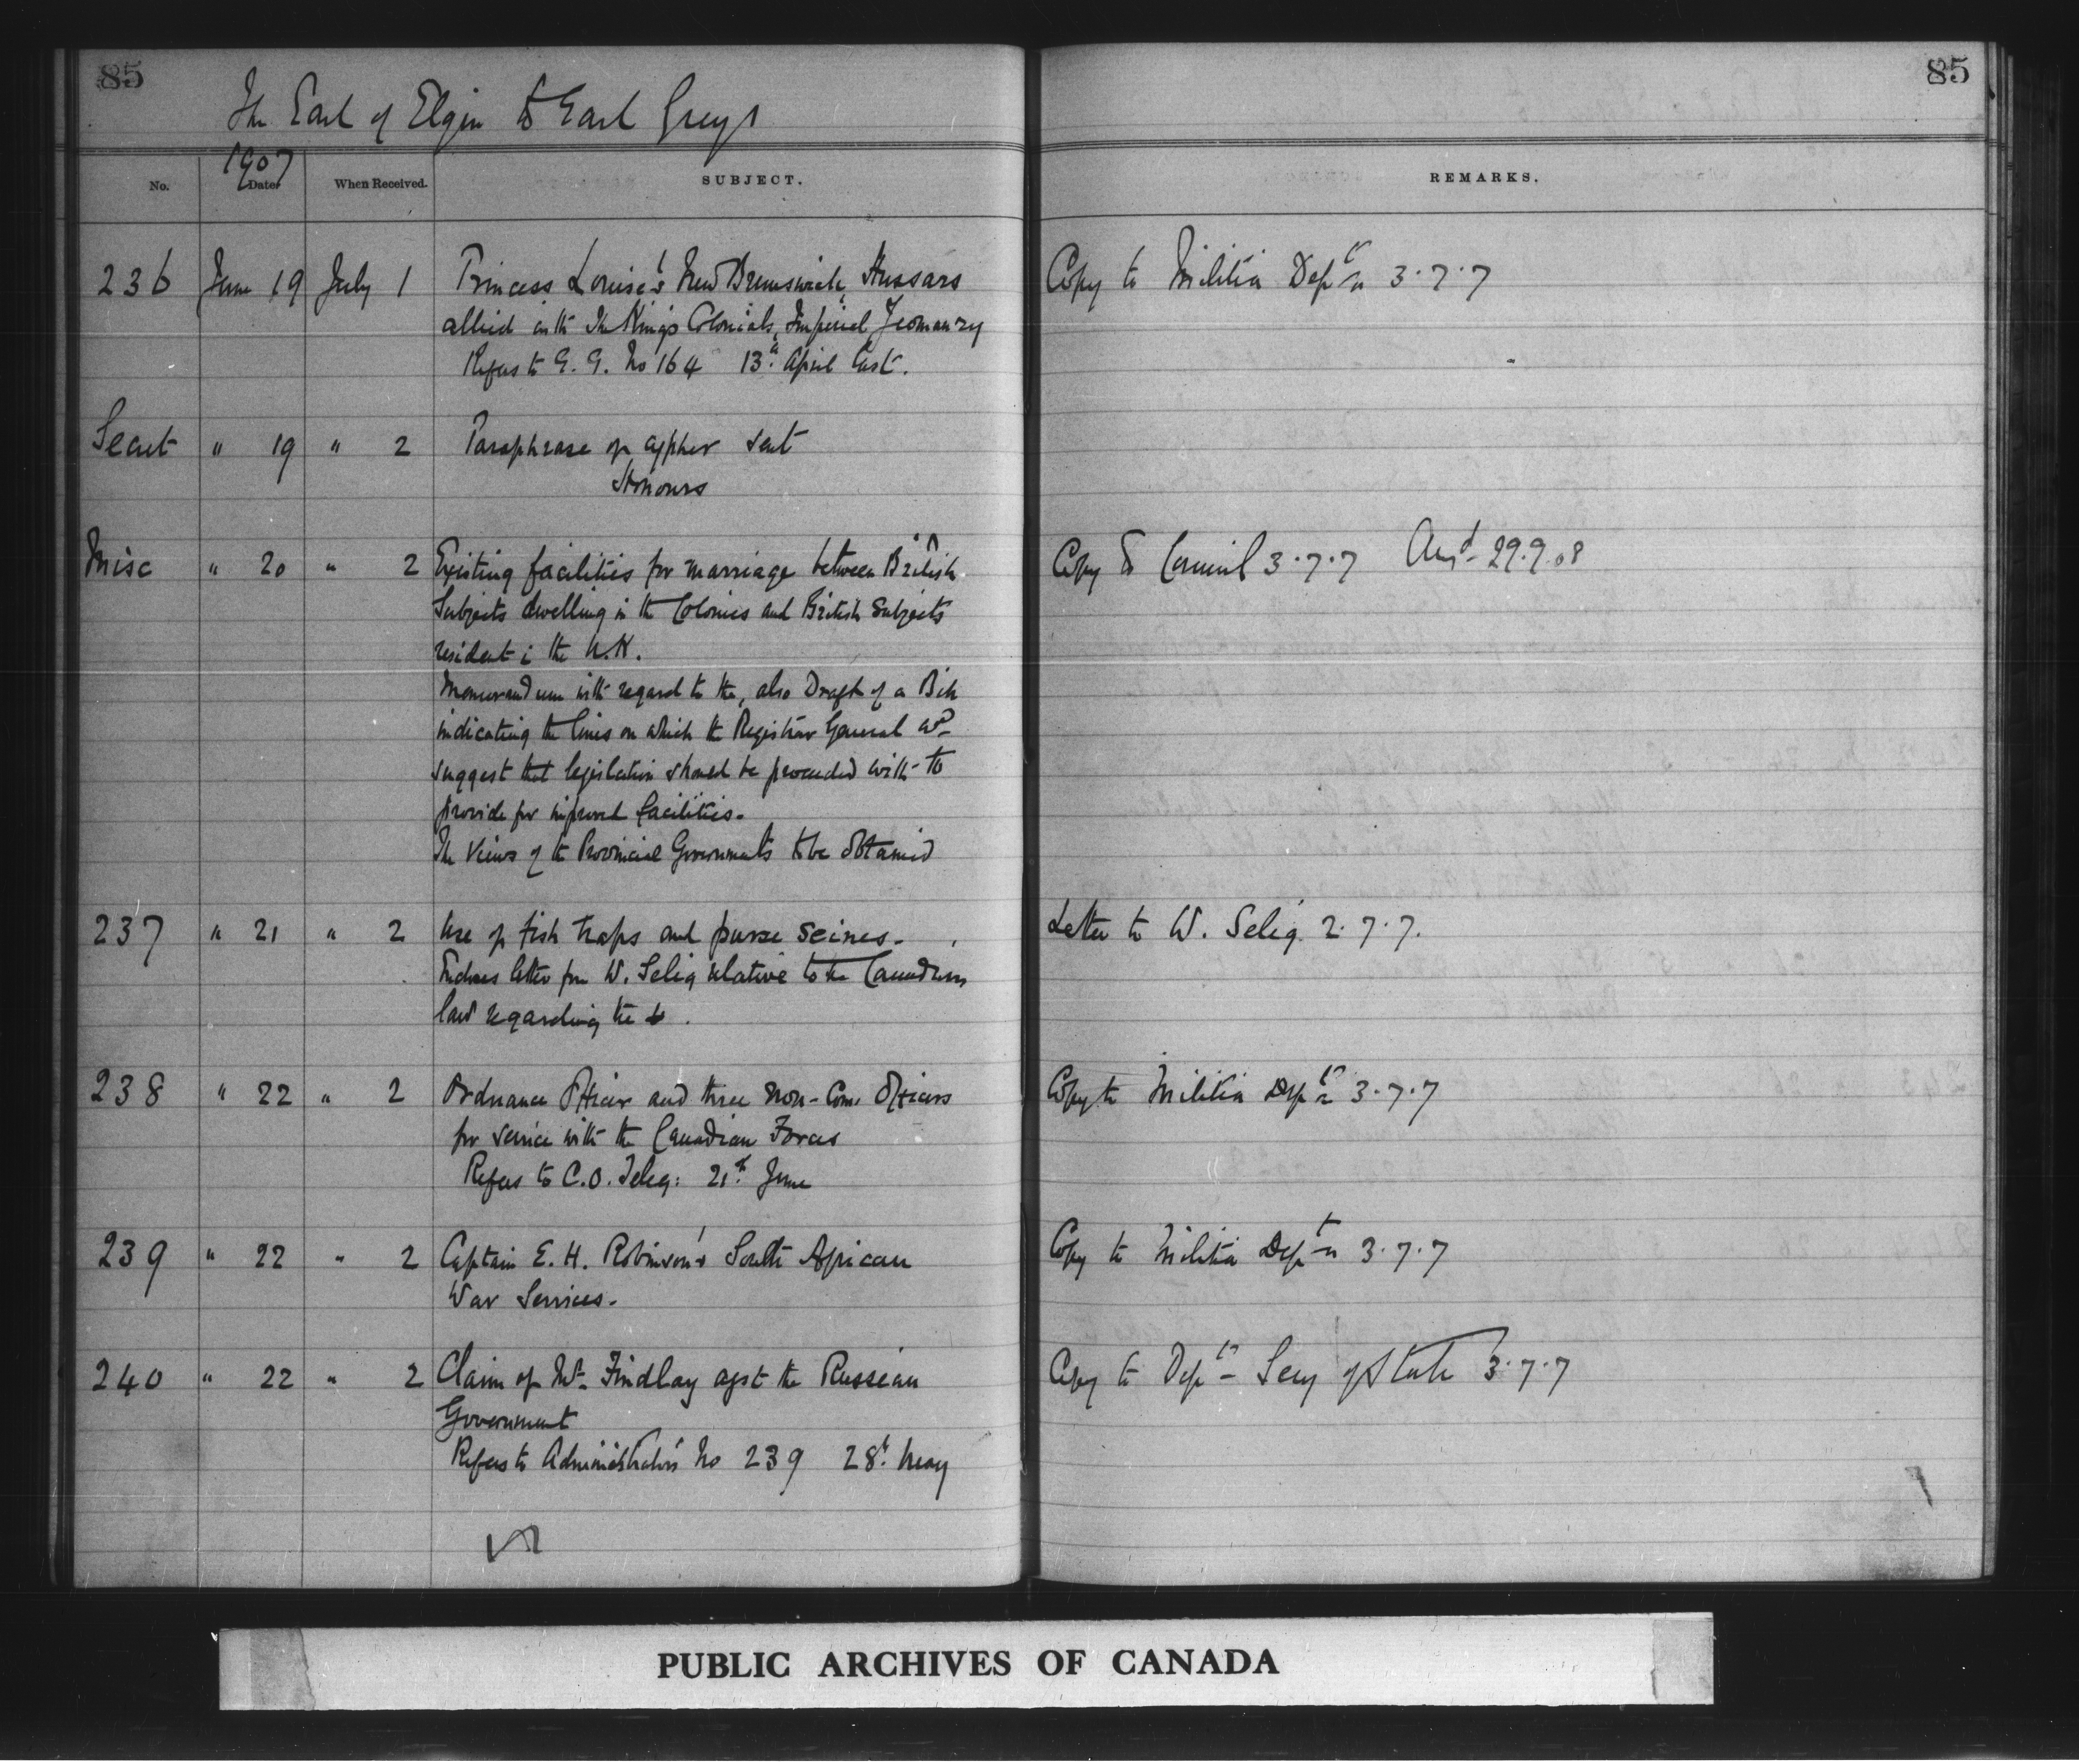 85
85
The Earl of Elgin to Earl Grey
1907
No. Date When Received. SUBJECT. REMARKS.
236 June 19 July 1 Princess Louise's New Brunswick Hussars Copy to Militia Deptn 3.7.7
allied with The King's Colonials, Imperial Yeomanry
Refers to G. G. No 164 13th April last.
Secret " 19 " 2 Paraphrase of cypher sent
Honours
Misc " 20 " 2 Existing facilities for marriage between British Copy to Council 3.7.7 Ansd 29.9.08
Subjects dwelling in the Colonies and British Subjects
resident in the U.K.
Memorandum with regard to the, also Draft of a Bill
indicating the lines on which the Registrar General wd
suggest that legislation should be proceeded with to
provide for improved facilities.
The views of the Provincial Governments to be obtained
237 " 21 " 2 Use of fish traps and purse seines. Letter to W. Selig 2.7.7.
Encloses letter from W. Selig relative to the Canadian
law regarding the
238 " 22 " 2 Ordnance Officer and three Non-Com. Officers Copy to Militia Deptn 3.7.7
for service with the Canadian Forces
Refers to C.O. Teleg: 21st June
239 " 22 " 2 Captain E. H. Robinson's South African Copy to Militia Deptn 3.7.7
War Services.
240 " 22 " 2 Claim of Mr. Findlay agst the Russian Copy to Dept Secy of State 3.7.7
Government
Refers to Administrator's No 239 28th May
PUBLIC ARCHIVES OF CANADA